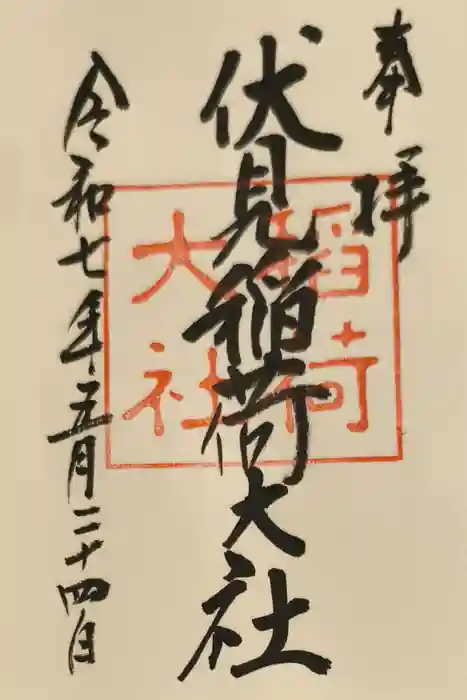 奉拝
伏見稲荷大社
稲荷
大社
令和七年五月二十四日